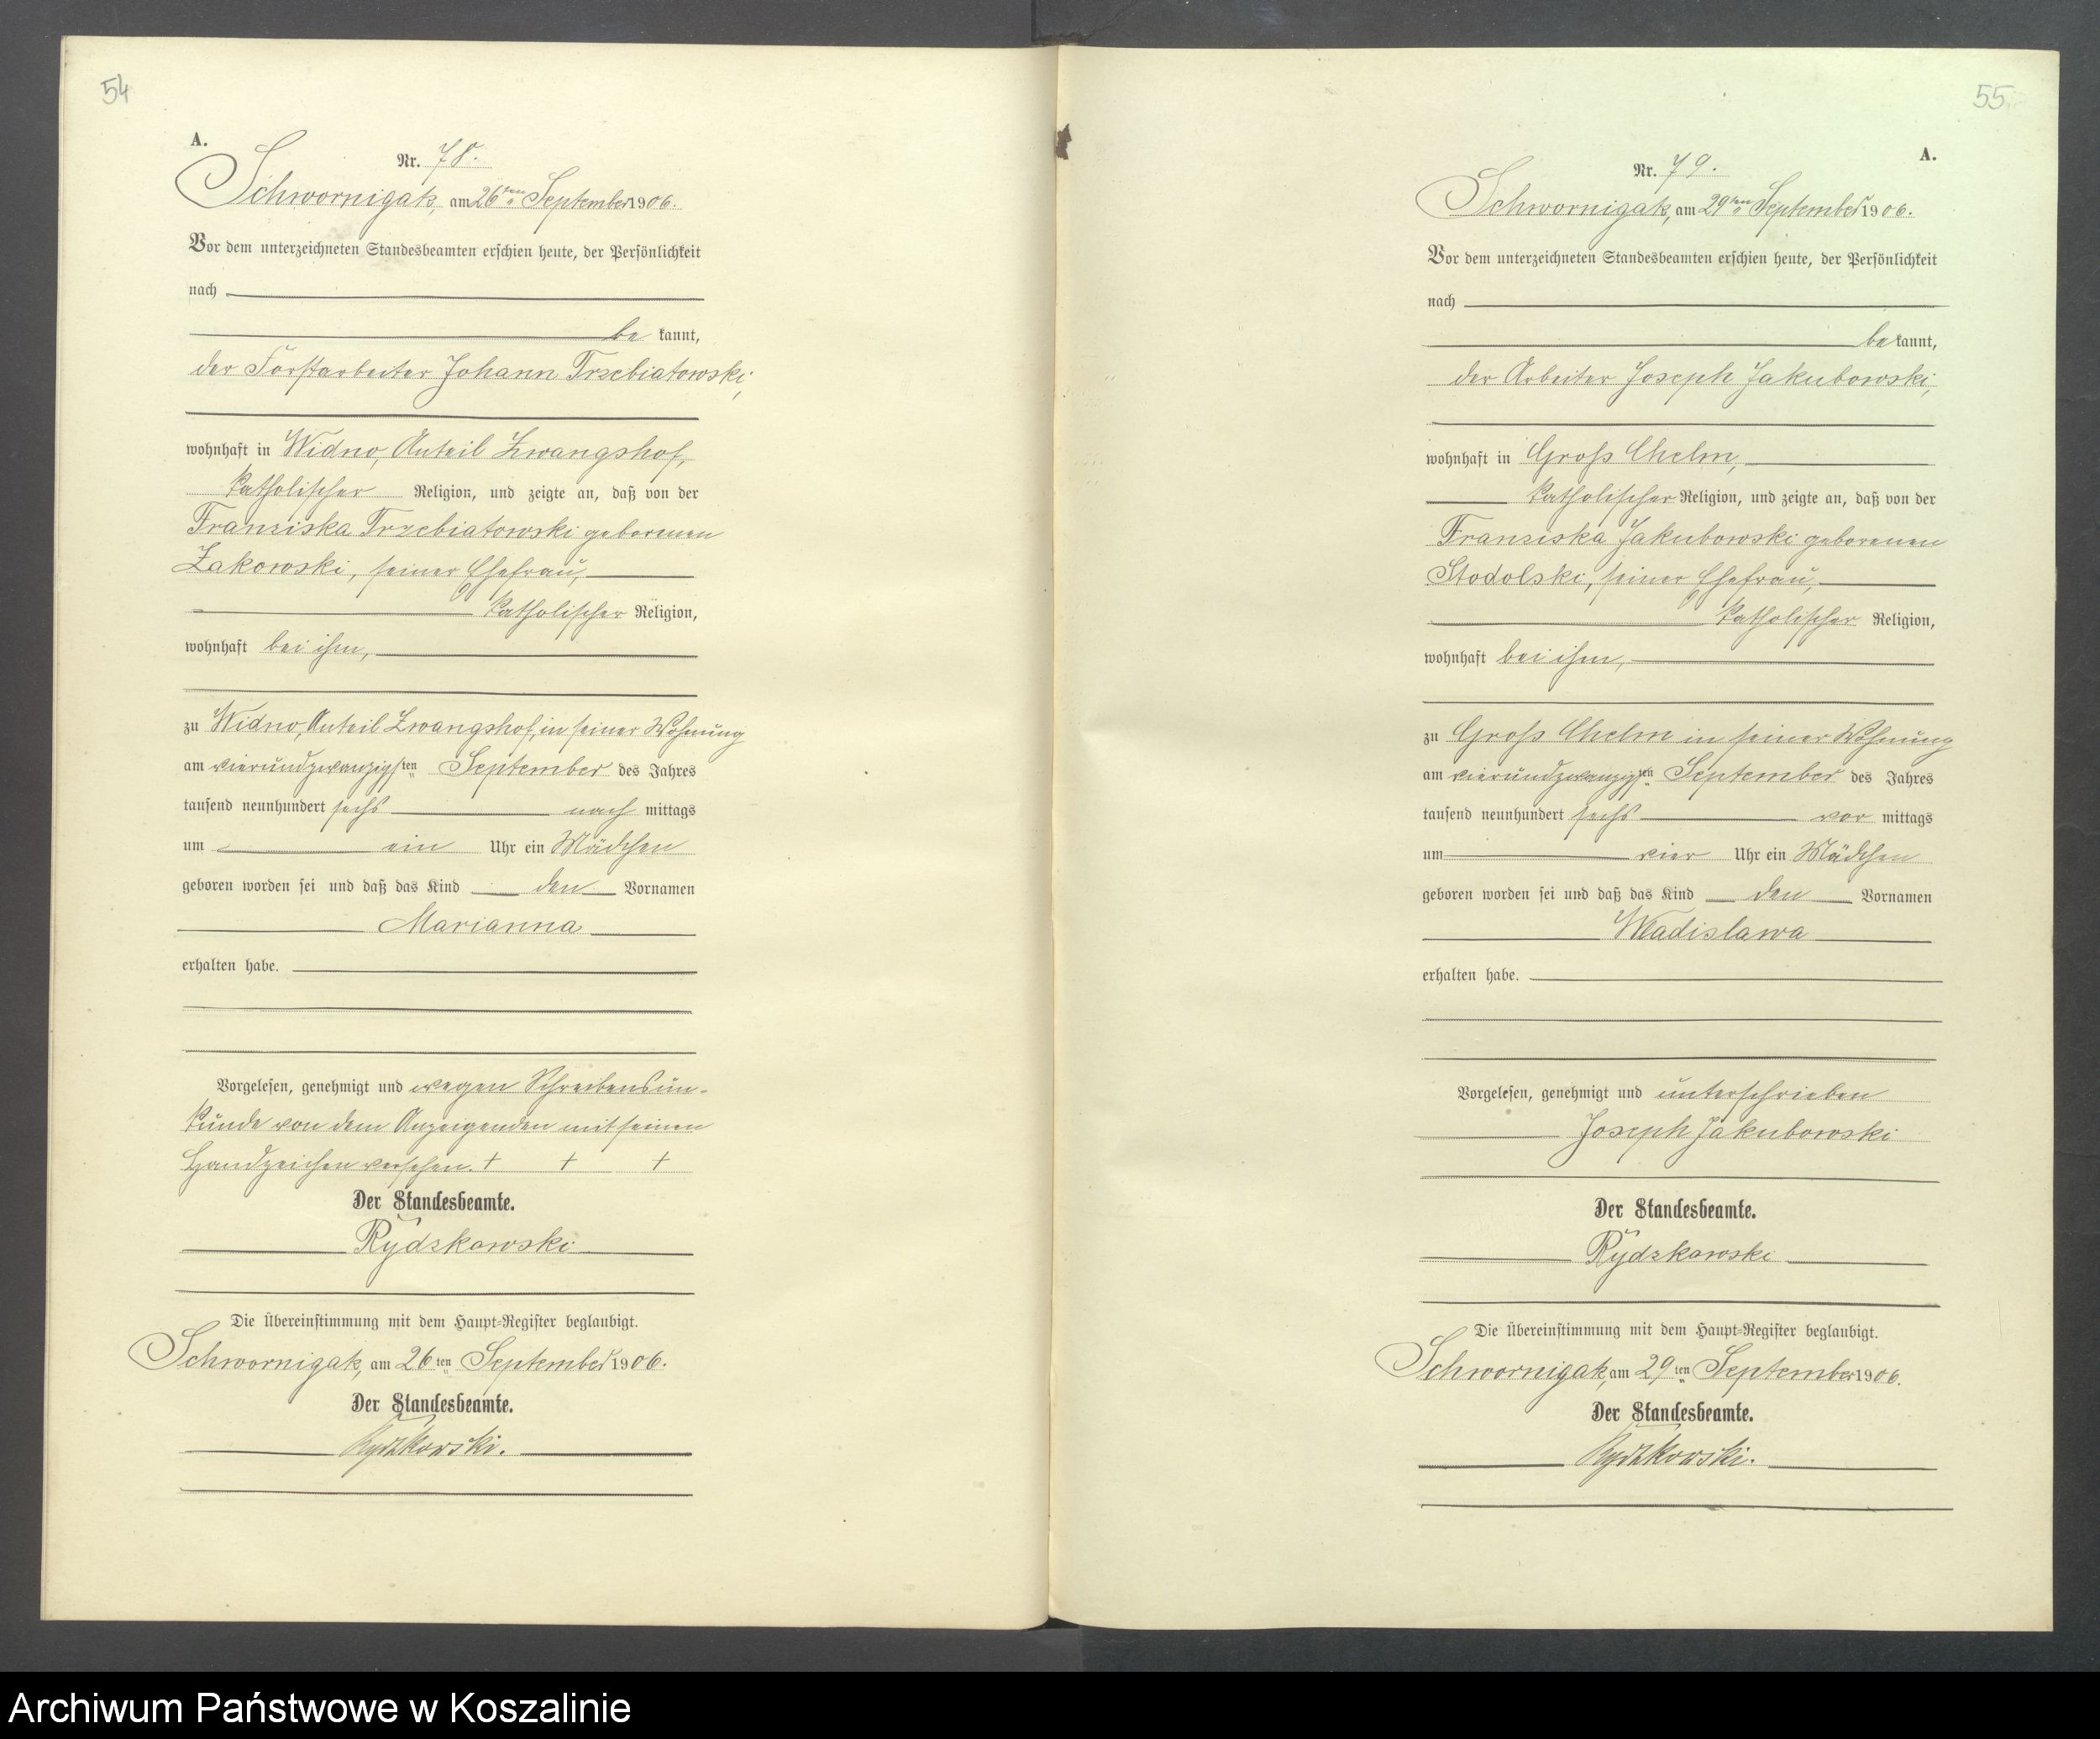 54
A.
Nr. 78.
Schwornigatz, am 26ten September 1906.
Vor dem unterzeichneten Standesbeamten erschien heute, der Persönlichkeit
nach
be kannt,
der Forstarbeiter Johann Trzebiatowski,
wohnhaft in Widno, Anteil Zwangshof,
katholischer Religion, und zeigte an, daß von der
Franziska Trzebiatowski geborenen
Zakowski, seiner Ehefrau,
katholischer Religion,
wohnhaft bei ihm,
zu Widno, Anteil Zwangshof, in seiner Wohnung
am vierundzwanzigsten September des Jahres
tausend neunhundert sechs nach mittags
um ein Uhr ein Mädchen
geboren worden sei und daß das Kind den Vornamen
Marianna
erhalten habe.
Vorgelesen, genehmigt und wegen Schreibensun-
kunde von dem Anzeigenden mit seinem
Handzeichen versehen. + + +
Der Standesbeamte.
Rydzkowski
Die Übereinstimmung mit dem Haupt-Register beglaubigt.
Schwornigatz, am 26ten September 1906.
Der Standesbeamte.
Rydzkowski.
55
A.
Nr. 79.
Schwornigatz, am 29ten September 1906.
Vor dem unterzeichneten Standesbeamten erschien heute, der Persönlichkeit
nach
be kannt,
der Arbeiter Joseph Jakubowski,
wohnhaft in Groß Chelm,
katholischer Religion, und zeigte an, daß von der
Franziska Jakubowski geborenen
Stodolski, seiner Ehefrau,
katholischer Religion,
wohnhaft bei ihm,
zu Groß Chelm in seiner Wohnung
am vierundzwanzigsten September des Jahres
tausend neunhundert sechs vor mittags
um vier Uhr ein Mädchen
geboren worden sei und daß das Kind den Vornamen
Wladislawa
erhalten habe.
Vorgelesen, genehmigt und unterschrieben
Joseph Jakubowski
Der Standesbeamte.
Rydzkowski
Die Übereinstimmung mit dem Haupt-Register beglaubigt.
Schwornigatz, am 29ten September 1906.
Der Standesbeamte.
Rydzkowski.
Archiwum Państwowe w Koszalinie